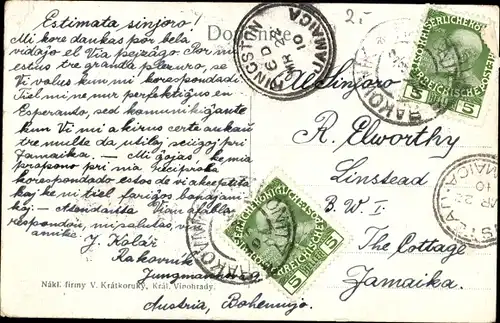 Estimata sinjoro!
Mi kore dankas por bela
vidaĵo el Via pejzaĝo. Por mi
estus tre granda plezuro, se
Vi volus kun mi korespondadi.
Tiel mi ne nur perfektiĝus en
Esperanto, sed komunikiĝante
kun Vi mi akirus certe ankaŭ
tre multe da utilaj sciigoj pri
Jamaika. — Mi ĝojas, ke mia
propono pri nia reciproka
korespondado estos de vi akceptita
kaj ke ni tiel fariĝos bonaj ami-
koj. — Atendante Vian afablan
respondon, mi salutas vin
amike.
J. Kolář
Rakovník
Jungmannova
Austria, Bohemujo.
Nákl. firmy V. Krátkoruký, Král. Vinohrady.
Dopisnice
2.-
KINGSTON
JAMAICA
MR 22
10
Al Sinjoro
R. Elworthy
Linstead
B. W. I.
The Cottage
Jamaika.
5
5
5
5
RAKONITZ
RAKOVNÍK
MR 22
10
JAMAICA